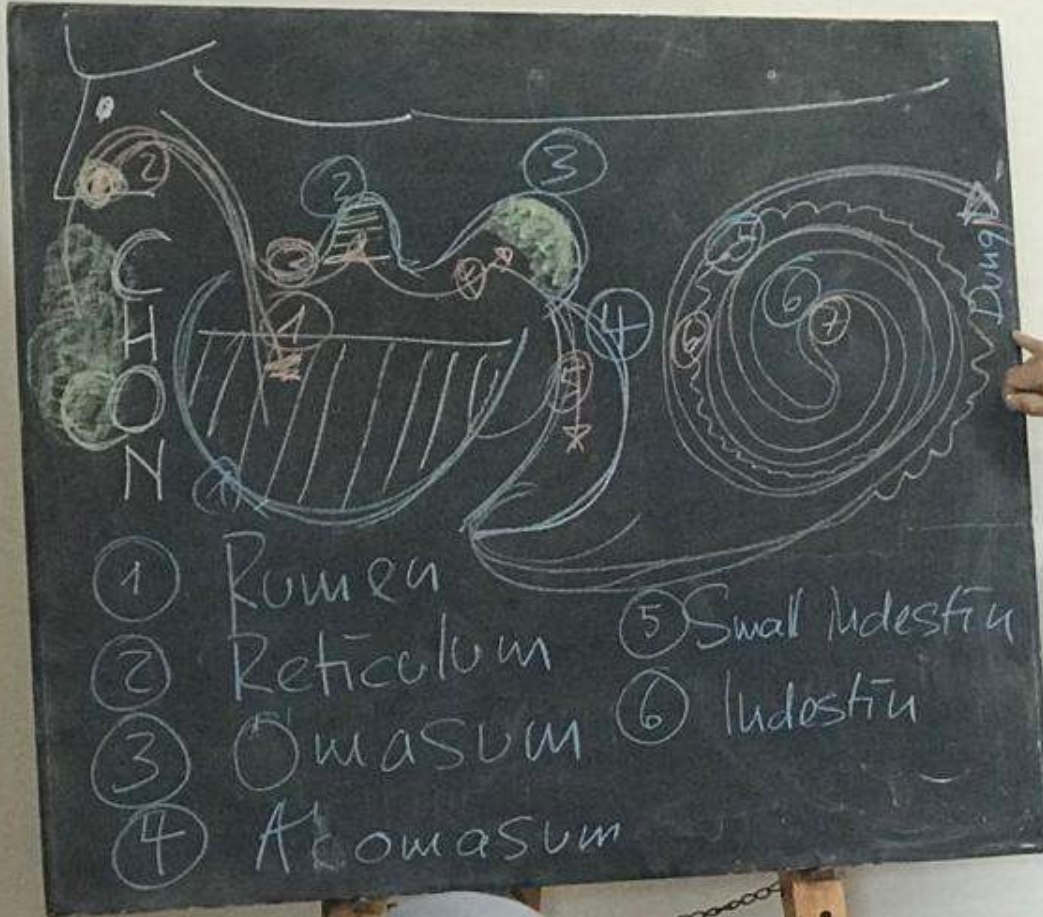 2
2
3
3
C
H
O
N
1
4
4
5
6
7
6
Dung
1
1 Rumen
2 Reticulum
3 Omasum
4 Abomasum
5 Small Indestin
6 Indestin